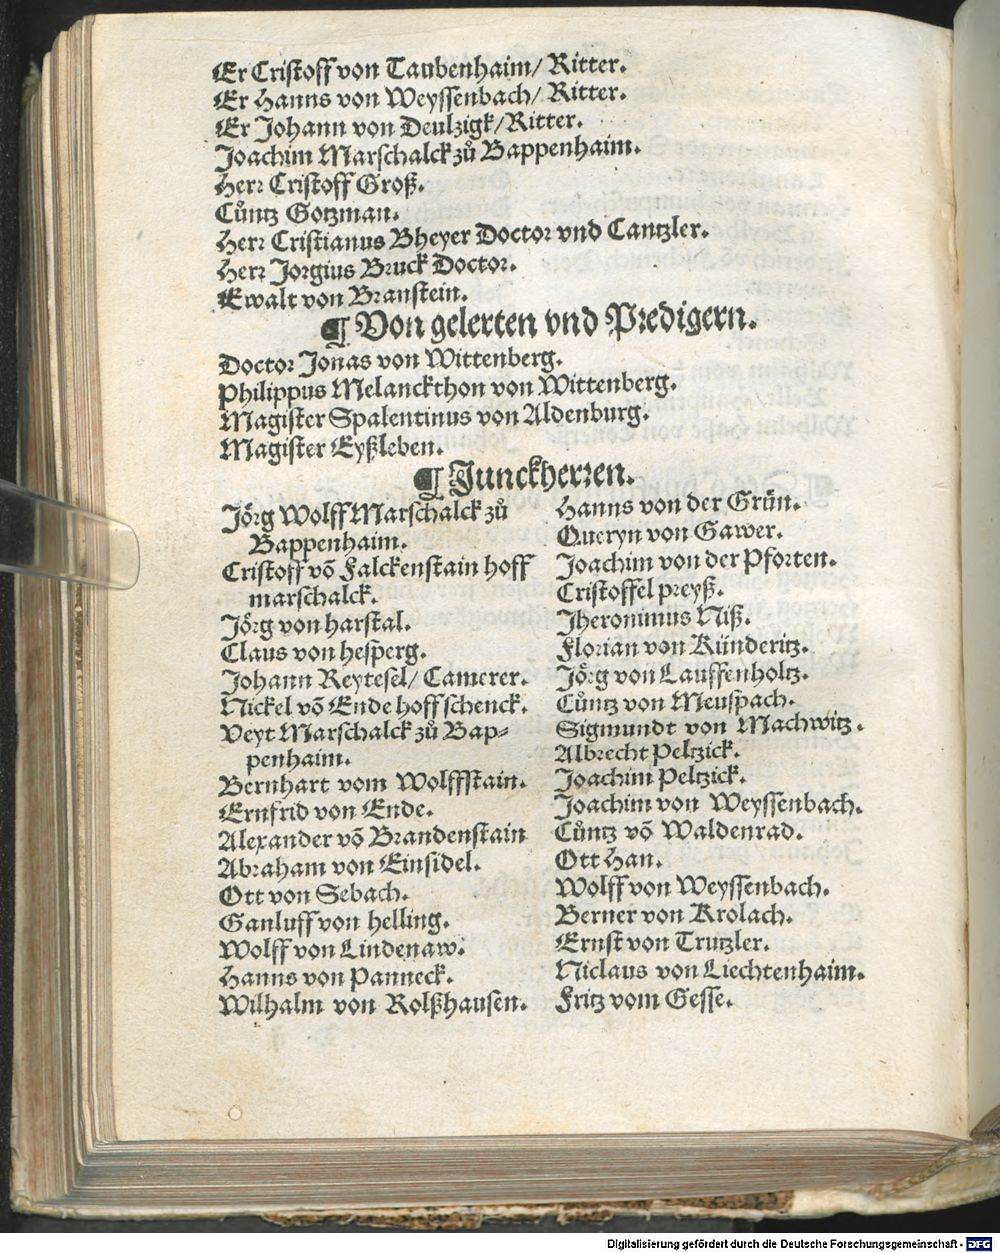 Er Cristoff von Taubenhaim/ Ritter.
Er Hanns von Weyssenbach/ Ritter.
Er Johann von Deulzigk/Ritter.
Joachim Marschalck zů Bappenhaim.
Herr Cristoff Groß.
Cůntz Gotzman.
Herr Cristianus Bheyer Doctor vnd Cantzler.
Herr Jorgius Bruck Doctor.
Ewalt von Branstein.
¶ Von gelerten vnd Predigern.
Doctor Jonas von Wittenberg.
Philippus Melanckthon von Wittenberg.
Magister Spalentinus von Aldenburg.
Magister Eyßleben.
¶ Junckherren.
Jőrg Wolff Marschalck zů
Bappenhaim.
Cristoff võ Falckenstain hoff
marschalck.
Jőrg von harstal.
Claus von hesperg.
Johann Reytesel/ Camerer.
Nickel võ Ende hoff schenck.
Veyt Marschalck zů Bap-
penhaim.
Bernhart vom Wolffstain.
Ernfrid von Ende.
Alexander võ Brandenstain
Abraham von Einsidel.
Ott von Sebach.
Ganluff von helling.
Wolff von Lindenaw.
Hanns von Panneck.
Wilhalm von Rolßhausen.
Hanns von der Grün.
Queryn von Gawer.
Joachim von der Pforten.
Cristoffel preyß.
Jheronimus Niß.
Florian von Künderitz.
Jőrg von Lauffenholtz.
Cůntz von Meuspach.
Sigmundt von Machwitz.
Albrecht Peltzick.
Joachim Peltzick.
Joachim von Weyssenbach.
Cůntz võ Waldenrad.
Ott Han.
Wolff von Weyssenbach.
Berner von Krolach.
Ernst von Trutzler.
Niclaus von Liechtenhaim.
Fritz vom Gesse.
Digitalisierung gefördert durch die Deutsche Forschungsgemeinschaft - DFG